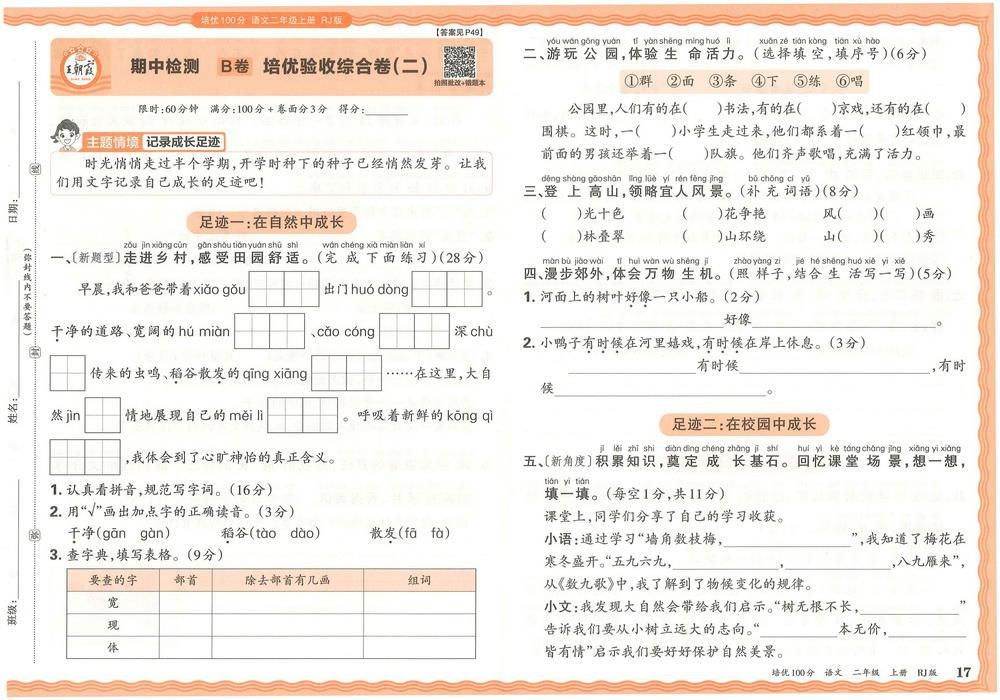 培优100分 语文二年级上册 RJ版
【答案见P49】
王朝霞
期中检测 B卷 培优验收综合卷(二)
拍照批改+错题本
限时:60分钟 满分:100分+卷面分3分 得分:
主题情境 记录成长足迹
时光悄悄走过半个学期,开学时种下的种子已经悄然发芽。让我
们用文字记录自己成长的足迹吧!
足迹一:在自然中成长
zǒu jìn xiāng cūn gǎn shòu tián yuán shū shì wán chéng xià miàn liàn xí
一、〔新题型〕走进乡村,感受田园舒适。(完成下面练习)(28分)
早晨,我和爸爸带着xiǎo gǒu 出门huó dòng 。
干净的道路、宽阔的hú miàn 、cǎo cóng 深chù
传来的虫鸣、稻谷散发的qīng xiāng ……在这里,大自
然jìn 情地展现自己的měi lì 。呼吸着新鲜的kōng qì
,我体会到了心旷神怡的真正含义。
1.认真看拼音,规范写字词。(16分)
2.用“√”画出加点字的正确读音。(3分)
干净(gān gàn) 稻谷(tào dào) 散发(fā fà)
3.查字典,填写表格。(9分)
要查的字 部首 除去部首有几画 组词
宽
现
体
日期:
姓名:
班级:
(弥封线内不要答题)
线
封
弥
yóu wán gōng yuán tǐ yàn shēng mìng huó lì xuǎn zé tián kòng tián xù hào
二、游玩公园,体验生命活力。(选择填空,填序号)(6分)
①群 ②面 ③条 ④下 ⑤练 ⑥唱
公园里,人们有的在( )书法,有的在( )京戏,还有的在( )
围棋。这时,一( )小学生走过来,他们都系着一( )红领巾,最
前面的男孩还举着一( )队旗。他们齐声歌唱,充满了活力。
dēng shàng gāo shān lǐng lüè yí rén fēng jǐng bǔ chōng cí yǔ
三、登上高山,领略宜人风景。(补充词语)(8分)
( )光十色 ( )花争艳 风( )( )画
( )林叠翠 ( )山环绕 山( )( )秀
màn bù jiāo wài tǐ huì wàn wù shēng jī zhào yàng zi jié hé shēng huó xiě yi xiě
四、漫步郊外,体会万物生机。(照样子,结合生活写一写)(5分)
1.河面上的树叶好像一只小船。(2分)
好像 。
2.小鸭子有时候在河里嬉戏,有时候在岸上休息。(3分)
有时候 ,有时
候 。
足迹二:在校园中成长
jī lěi zhī shi diàn dìng chéng zhǎng jī shí huí yì kè táng chǎng jǐng xiǎng yi xiǎng
五、〔新角度〕积累知识,奠定成长基石。回忆课堂场景,想一想,
tián yi tián
填一填。(每空1分,共11分)
课堂上,同学们分享了自己的学习收获。
小语:通过学习“墙角数枝梅, ”,我知道了梅花在
寒冬盛开。“五九六九, , ,八九雁来”,
从《数九歌》中,我了解到了物候变化的规律。
小文:我发现大自然会带给我们启示。“树无根不长, ”
告诉我们要从小树立远大的志向。“ 本无价,
皆有情”启示我们要好好保护自然美景。
培优100分 语文 二年级 上册 RJ版 17